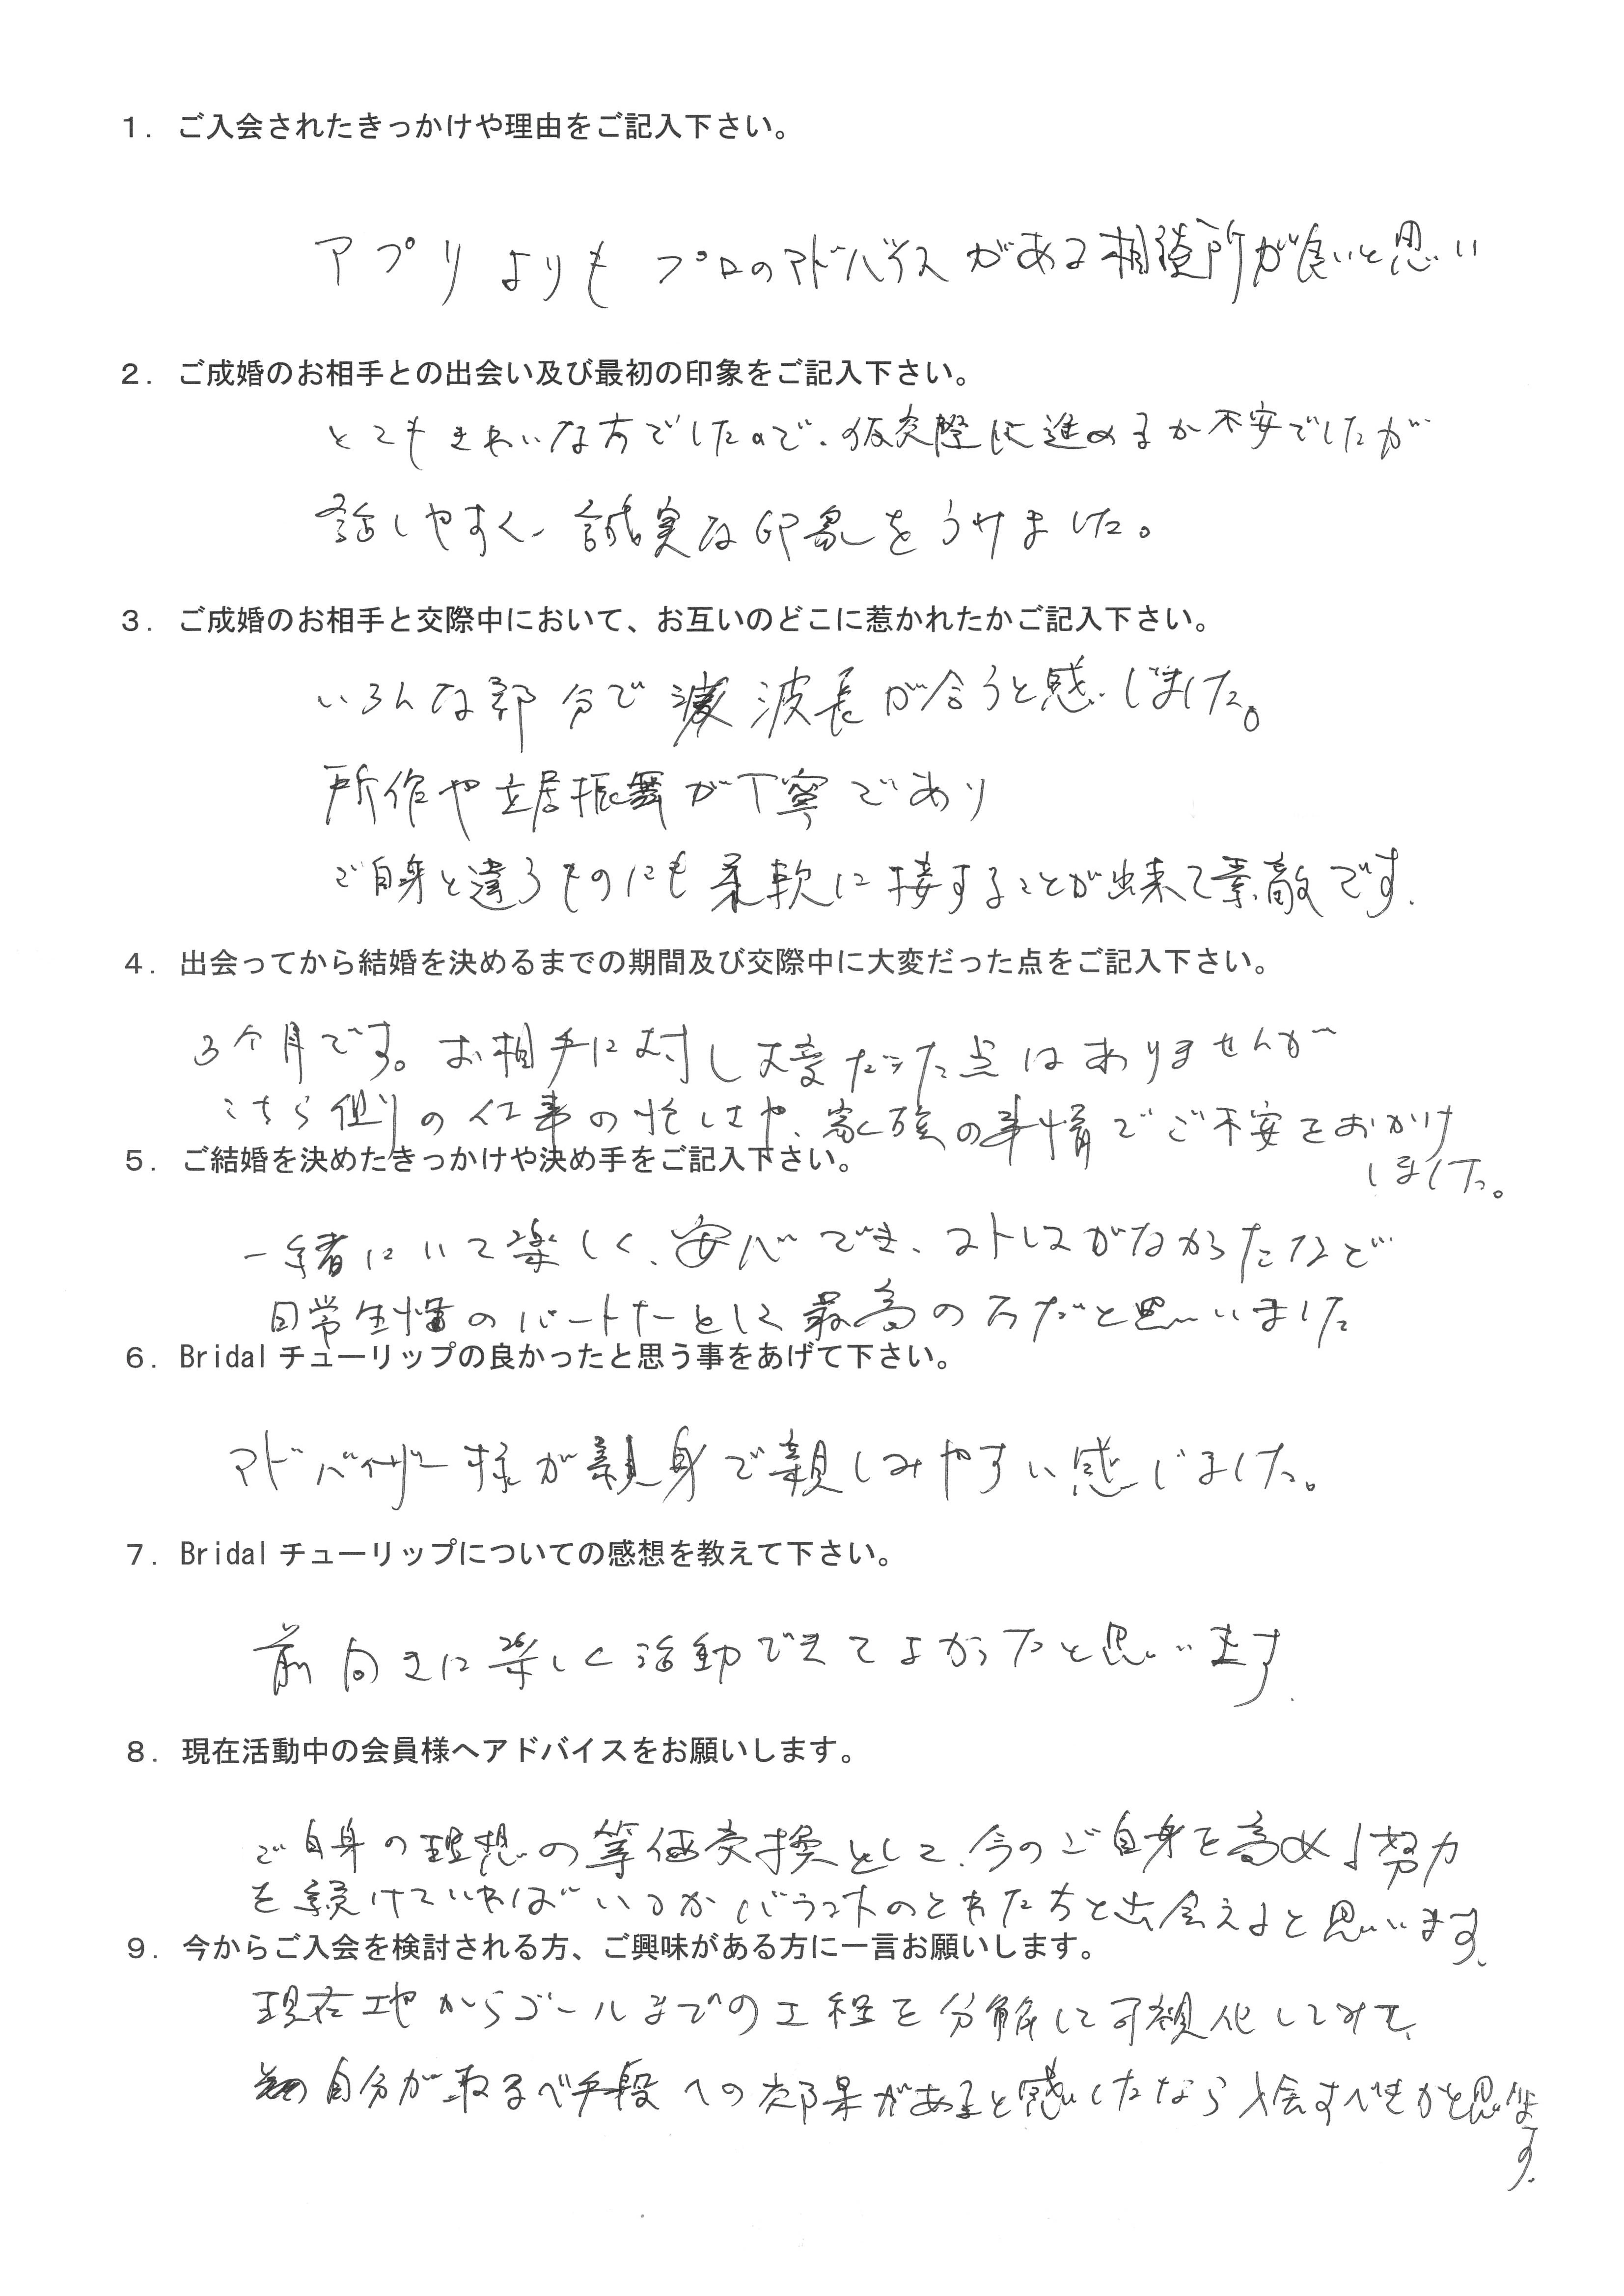 １．ご入会されたきっかけや理由をご記入下さい。
アプリよりもプロのアドバイスがある相談所が良いと思い
２．ご成婚のお相手との出会い及び最初の印象をご記入下さい。
とてもきれいな方でしたので、仮交際に進めるか不安でしたが
話しやすく、誠実な印象をうけました。
３．ご成婚のお相手と交際中において、お互いのどこに惹かれたかご記入下さい。
いろんな部分で波長が合うと感じました。
所作や立居振舞が丁寧であり
ご自身と違うものにも柔軟に接することが出来て素敵です.
４．出会ってから結婚を決めるまでの期間及び交際中に大変だった点をご記入下さい。
3ケ月です。お相手に対し大変だった点はありませんが
こちら側の仕事の忙しさや、家族の事情でご不安をおかけ
しました。
５．ご結婚を決めたきっかけや決め手をご記入下さい。
一緒にいて楽しく、安心でき、ストレスがなかったなど
日常生活のパートナーとして最高の方だと思いました
６．Bridalチューリップの良かったと思う事をあげて下さい。
アドバイザー様が親身で親しみやすい感じました。
７．Bridalチューリップについての感想を教えて下さい。
前向きに楽しく活動できてよかったと思います.
８．現在活動中の会員様へアドバイスをお願いします。
ご自身の理想の等価交換として、今のご自身を高める努力
を続けていればいつかバランスのとれた方と出会えると思います.
９．今からご入会を検討される方、ご興味がある方に一言お願いします。
現在地からゴールまでの工程を分解して可視化してみて、
自分が取るべき手段への効果があると感じたなら入会すべきかと思いま
す.